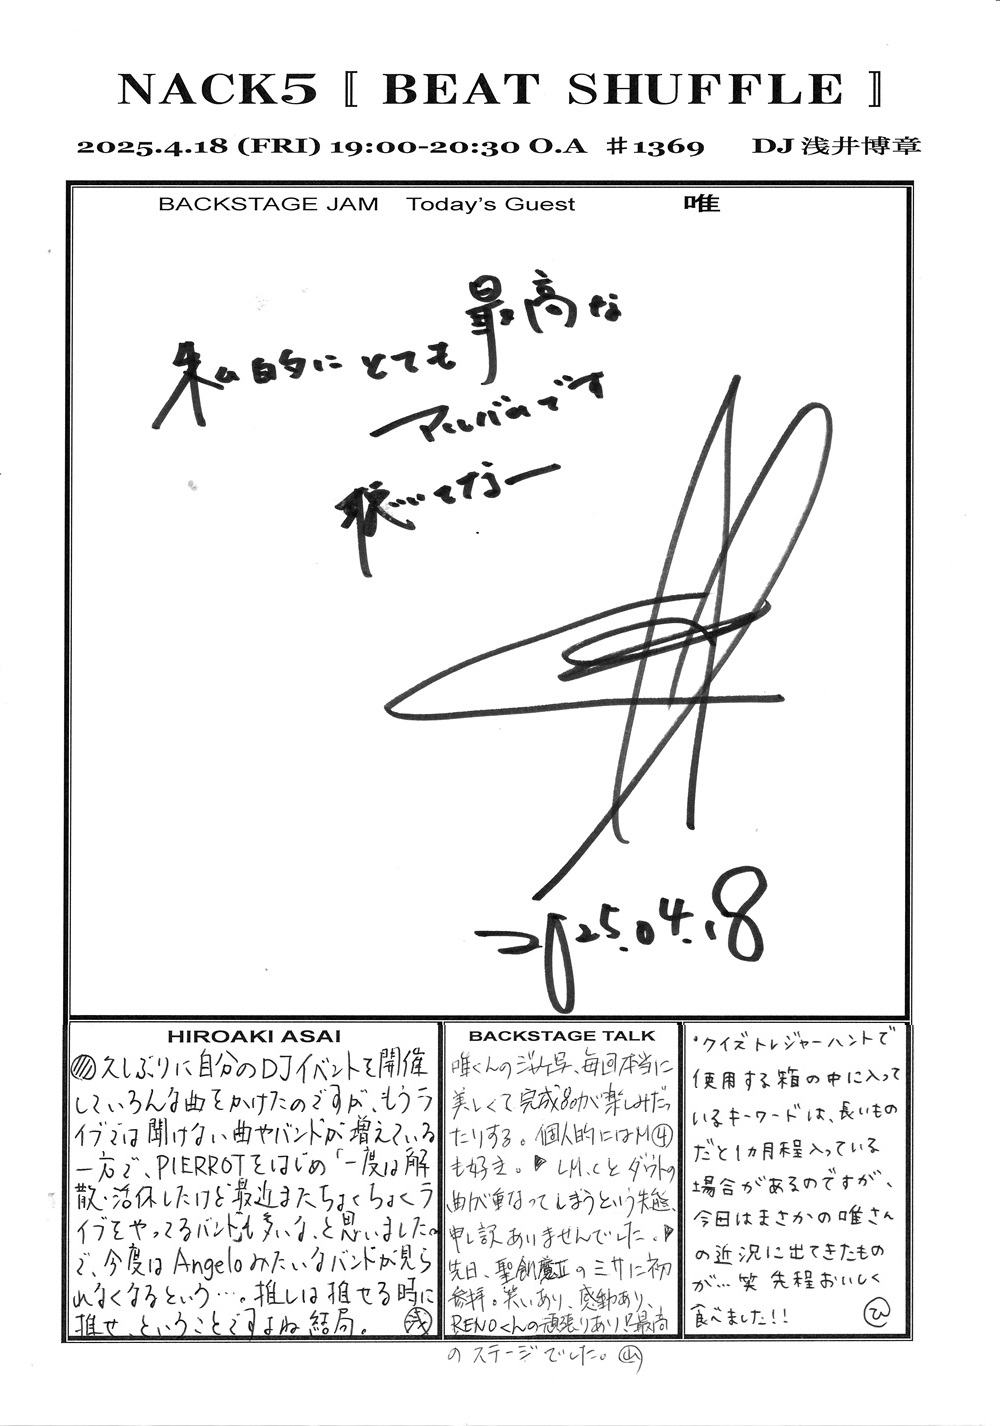 NACK5 〚 BEAT SHUFFLE 〛
2025.4.18 (FRI) 19:00-20:30 O.A ♯1369 DJ 浅井博章
BACKSTAGE JAM Today's Guest 唯
私的にとても最高な
アルバムです
聴いてなー
2025.04.18
HIROAKI ASAI
久しぶりに自分のDJイベントを開催
していろんな曲をかけたのですが、もうラ
イブでは聞けない曲やバンドが増えている
一方で、PIERROTをはじめ「一度は解
散・活休したけど最近またちょくちょくラ
イブをやってるバンド」も多いな、と思いました。
で、今度はAngeloみたいなバンドが見ら
れなくなるという…。推しは推せる時に
推せ、ということですよね結局。 浅
BACKSTAGE TALK
唯くんのジャケ写、毎回本当に
美しくて完成するのが楽しみだっ
たりする。個人的にはM④
も好き。 LM.Cとダウトの
曲が重なってしまうという失態、
申し訳ありませんでした。
先日、聖飢魔IIのミサに初
参拝。笑いあり、感動あり、
RENOくんの頑張りあり!?最高
のステージでした。 山
・クイズトレジャーハントで
使用する箱の中に入って
いるキーワードは、長いもの
だと1カ月程入っている
場合があるのですが、
今日はまさかの唯さん
の近況に出てきたもの
が…笑 先程おいしく
食べました!! ひ